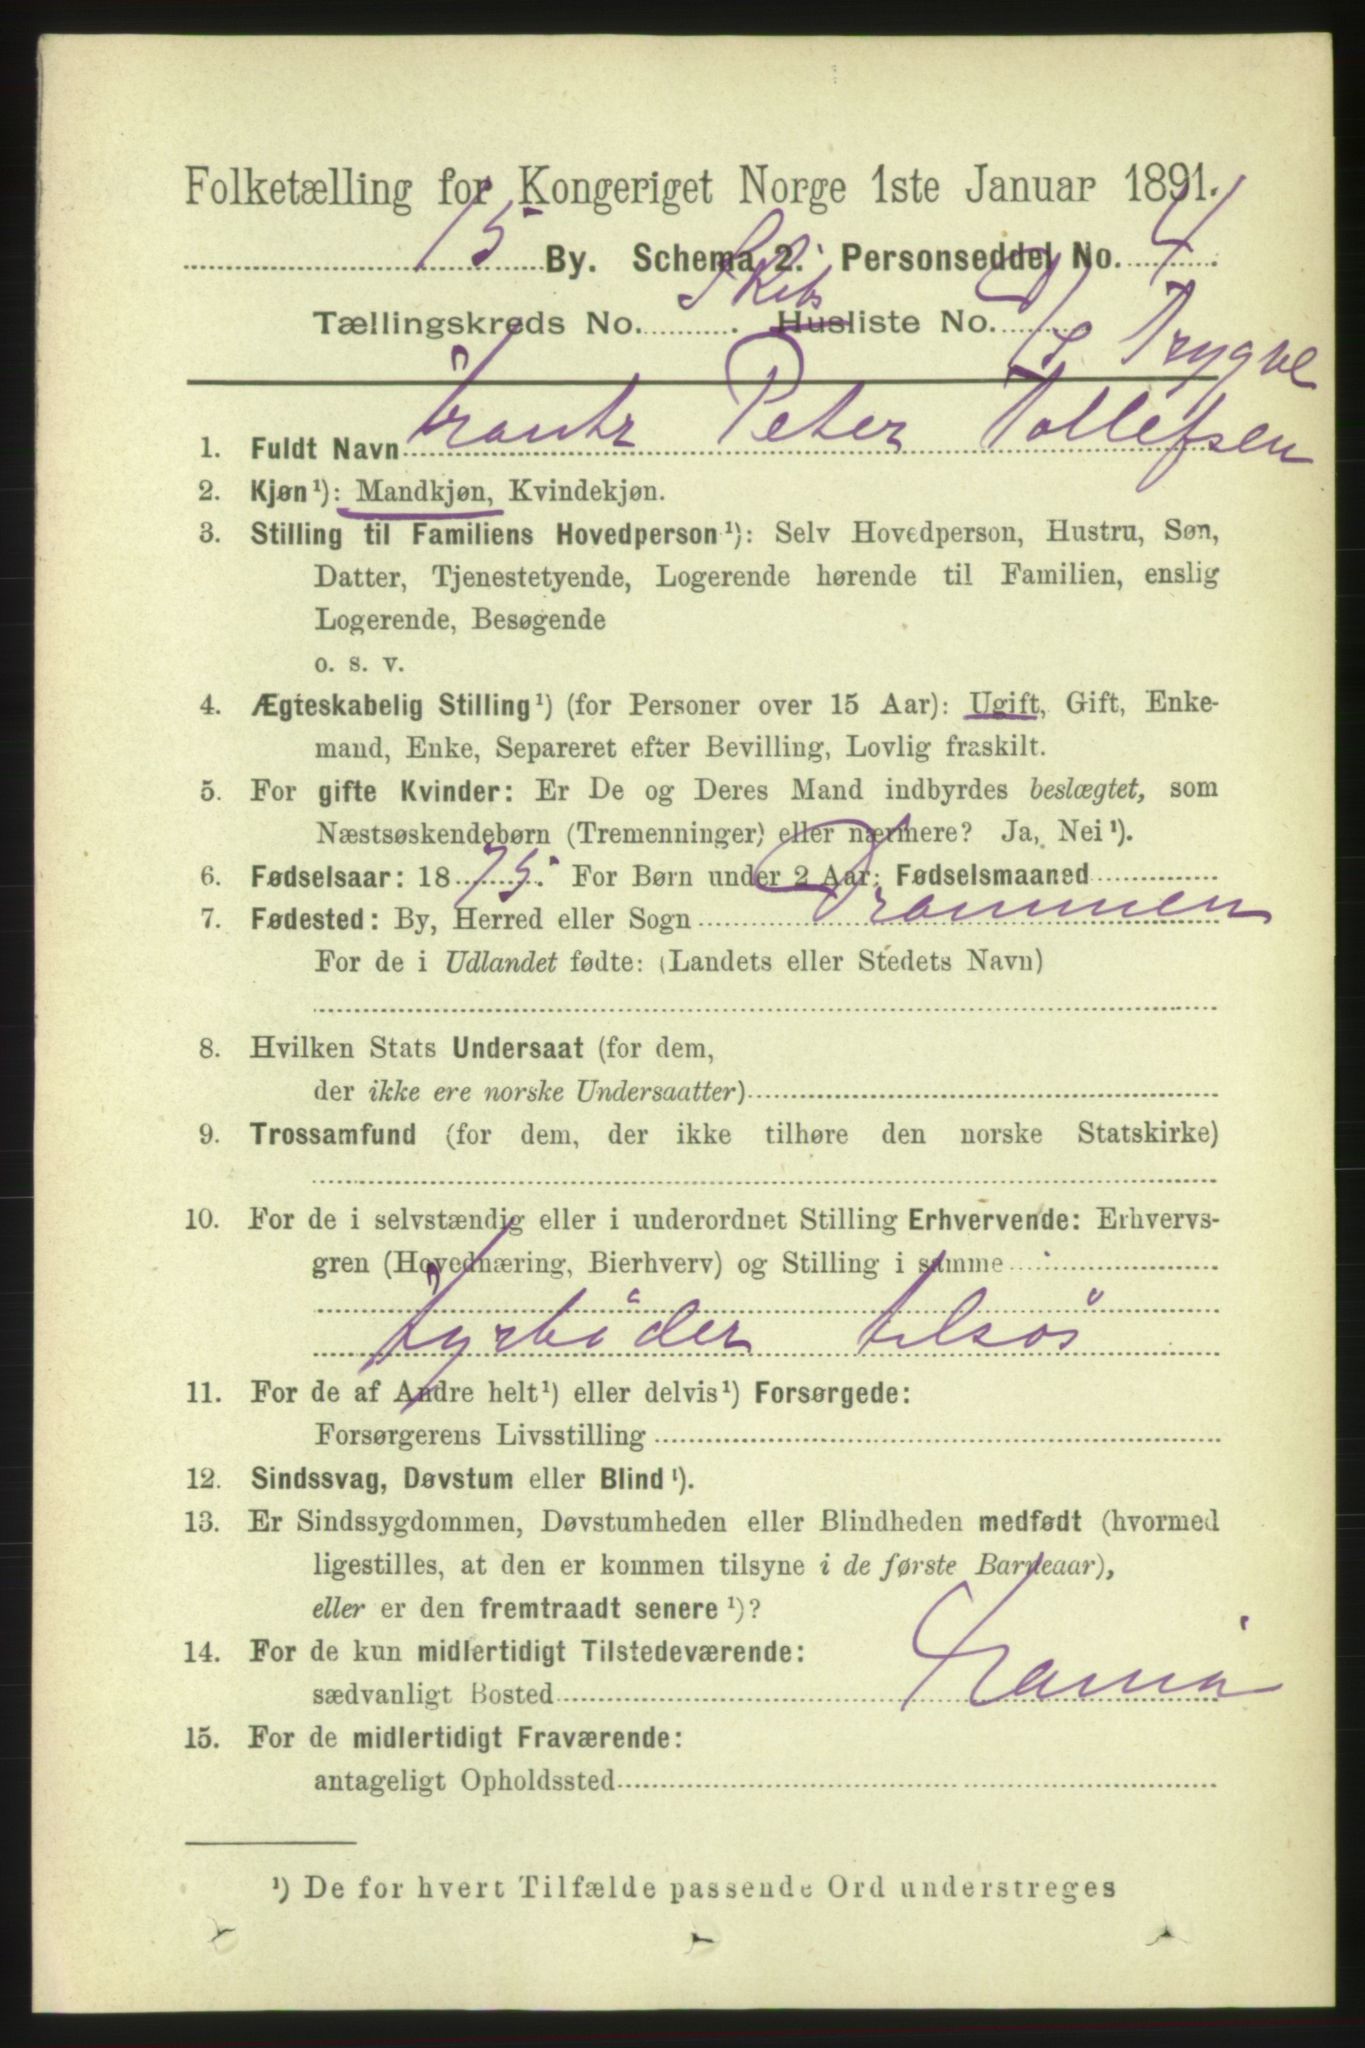 Folketælling for Kongeriget Norge 1ste Januar 1891.
15 By. Schema 2. Personseddel No. 4.
Tællingskreds No. . Skibs Husliste No. D/S Trygve
1. Fuldt Navn Frantz Peter Tollefsen
2. Kjøn¹): Mandkjøn, Kvindekjøn.
3. Stilling til Familiens Hovedperson¹): Selv Hovedperson, Hustru, Søn,
Datter, Tjenestetyende, Logerende hørende til Familien, enslig
Logerende, Besøgende
o. s. v.
4. Ægteskabelig Stilling¹) (for Personer over 15 Aar): Ugift, Gift, Enke-
mand, Enke, Separeret efter Bevilling, Lovlig fraskilt.
5. For gifte Kvinder: Er De og Deres Mand indbyrdes beslægtet, som
Næstsøskendebørn (Tremenninger) eller nærmere? Ja, Nei¹).
6. Fødselsaar: 1875. For Børn under 2 Aar: Fødselsmaaned
7. Fødested: By, Herred eller Sogn Drammen
For de i Udlandet fødte: (Landets eller Stedets Navn)
8. Hvilken Stats Undersaat (for dem,
der ikke ere norske Undersaatter)
9. Trossamfund (for dem, der ikke tilhøre den norske Statskirke)
10. For de i selvstændig eller i underordnet Stilling Erhvervende: Erhvervs-
gren (Hovednæring, Bierhverv) og Stilling i samme
Fyrböder tilsös
11. For de af Andre helt¹) eller delvis¹) Forsørgede:
Forsørgerens Livsstilling
12. Sindssvag, Døvstum eller Blind¹).
13. Er Sindssygdommen, Døvstumheden eller Blindheden medfødt (hvormed
ligestilles, at den er kommen tilsyne i de første Barneaar),
eller er den fremtraadt senere¹)?
14. For de kun midlertidigt Tilstedeværende:
sædvanligt Bosted
15. For de midlertidigt Fraværende:
antageligt Opholdssted
¹) De for hvert Tilfælde passende Ord understreges